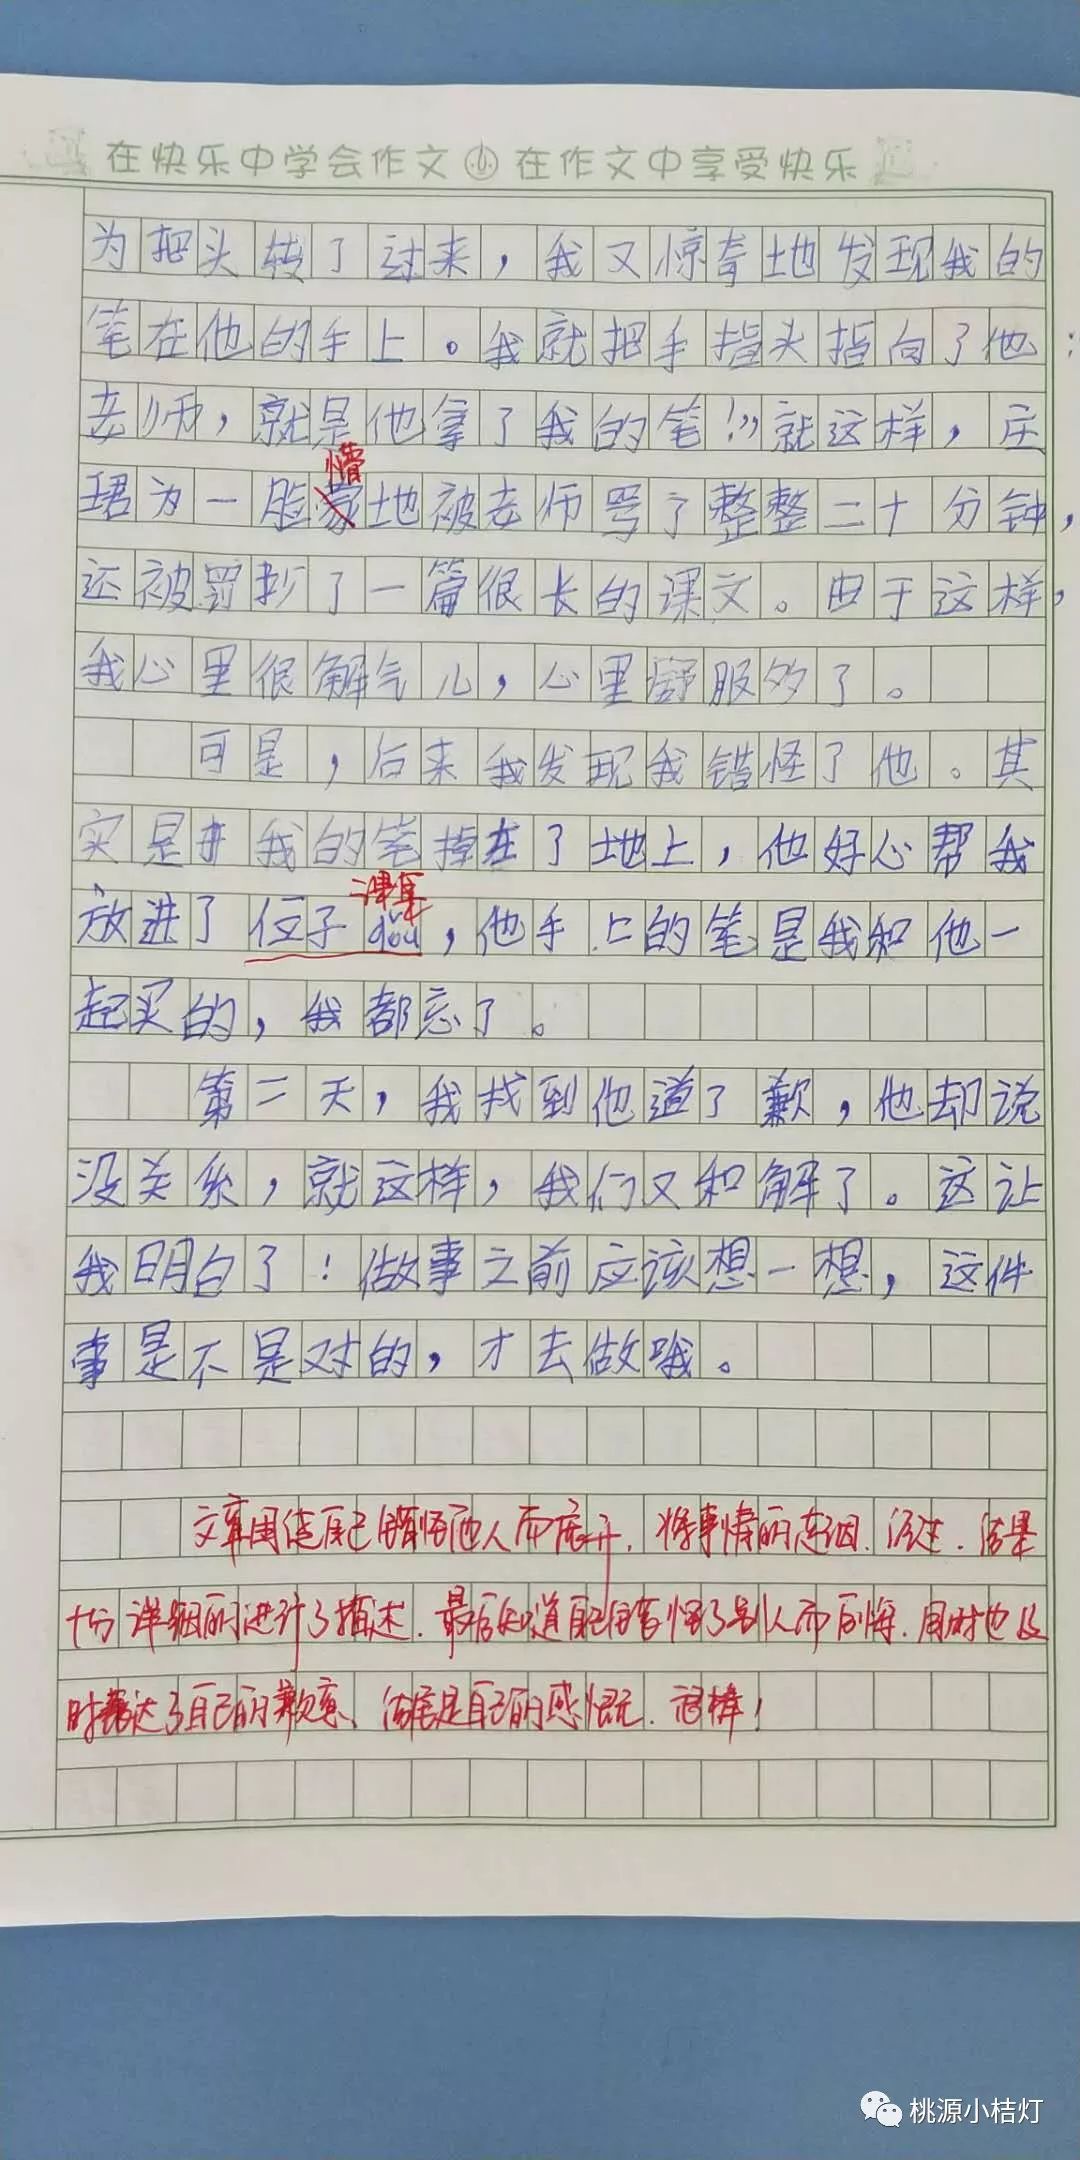 在快乐中学会作文 在作文中享受快乐
为把头转了过来，我又惊奇地发现我的
笔在他的手上。我就把手指头指向了他：
老师，就是他拿了我的笔！”就这样，庄
懵
珺为一脸蒙地被老师骂了整整二十分钟，
还被罚抄了一篇很长的课文。由于这样，
我心里很解气儿，心里舒服多了。
可是，后来我发现我错怪了他。其
实是我的笔掉在了地上，他好心帮我
放进了位子gǒu，他手上的笔是我和他一
起买的，我都忘了。
第二天，我找到他道了歉，他却说
没关系，就这样，我们又和解了。这让
我明白了！做事之前应该想一想，这件
事是不是对的，才去做哦。
文章围绕自己错怪他人而展开，将事情的起因、经过、结果
十分详细的进行了描述，最后知道自己错怪了别人而后悔，同时也及
时表达了自己的歉意，结尾是自己的感慨，很棒！
桃源小桔灯